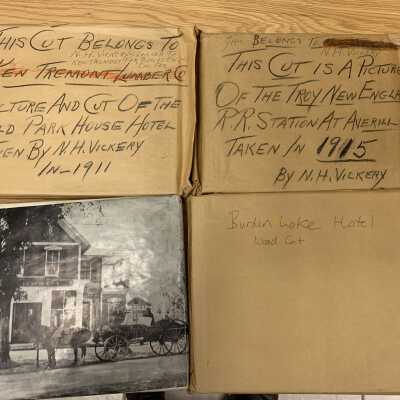 THIS CUT BELONGS TO
N.H. VICKERY
KEN TREMONT LUMBER CO
PICTURE AND CUT OF THE
OLD PARK HOUSE HOTEL
TAKEN BY N.H. VICKERY
IN—1911
THIS BELONGS TO
N.H. VICKERY
THIS CUT IS A PICTURE
OF THE TROY NEW ENGLA
R.R. STATION AT AVERILL
TAKEN IN 1915
BY N.H. VICKERY
Burden Lake Hotel
Lead Cut